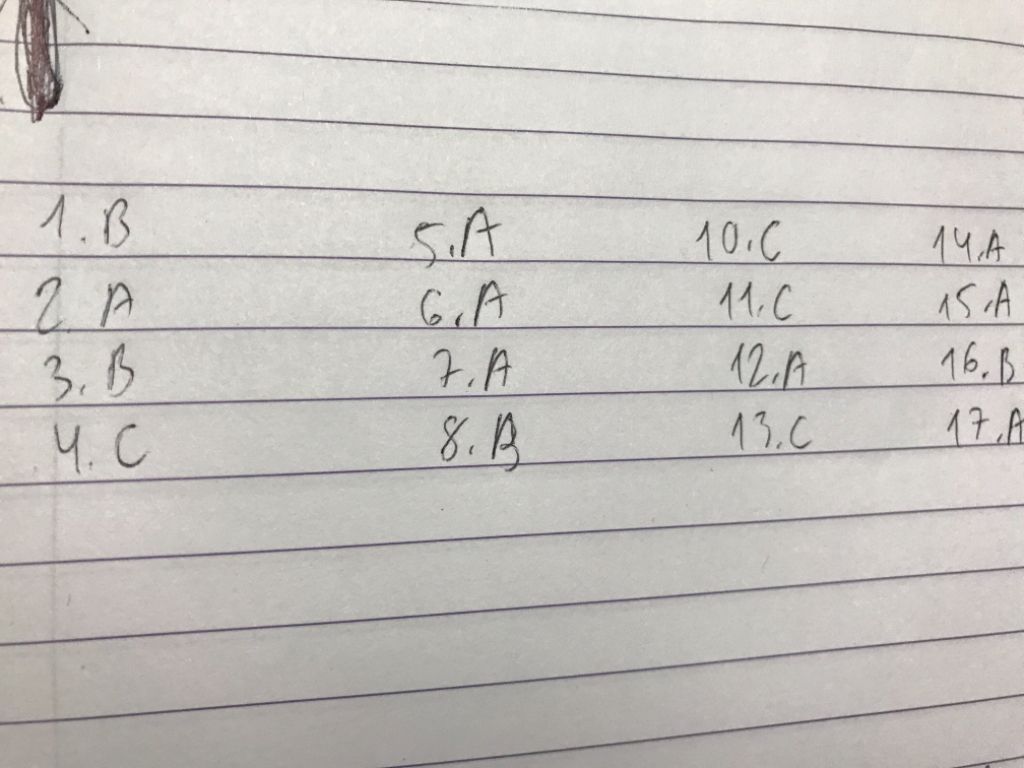 1. B 5. A 10. C 14. A
2. A 6. A 11. C 15. A
3. B 7. A 12. A 16. B
4. C 8. B 13. C 17. A